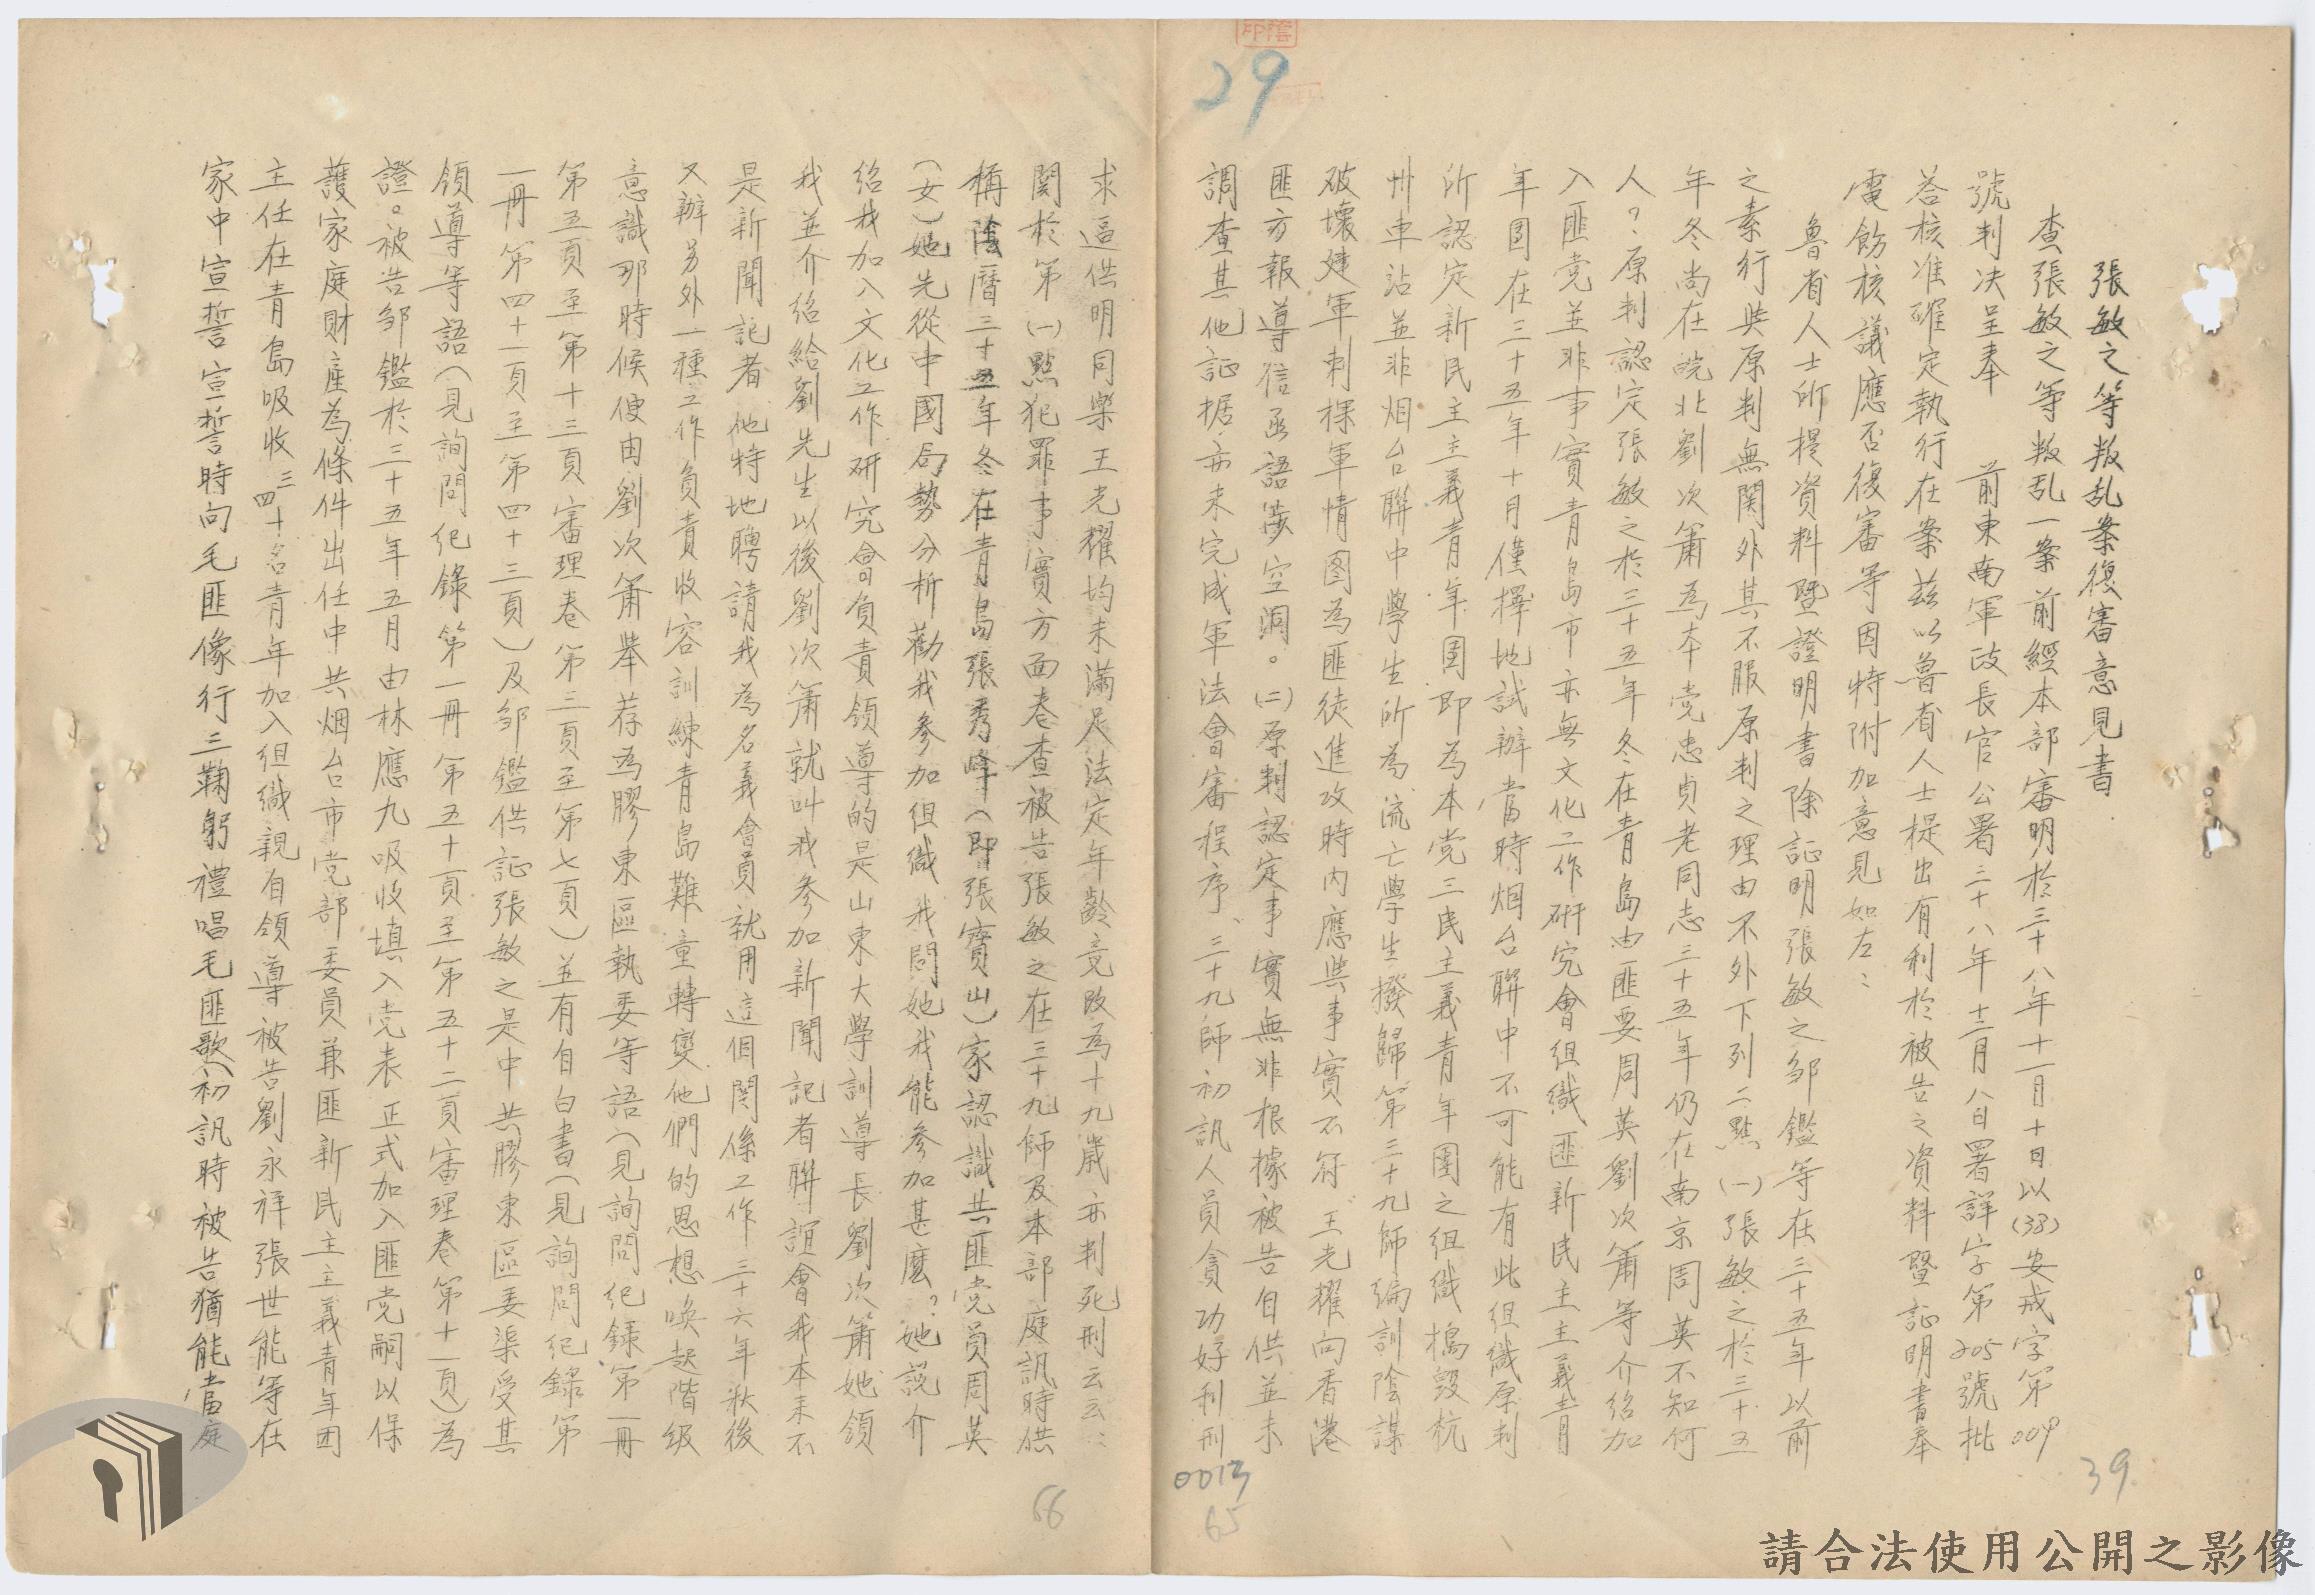 張敏之等叛乱案復審意見書
查張敏之等叛乱一案前經本部審明於三十八年十一月十日以(38)安戒字第009
號判決呈奉　前東南軍政長官公署三十八年十二月八日署詳字第205號批
答核准確定執行在案茲以魯省人士提出有利於被告之資料暨証明書奉
電飭核議應否復審等因特附加意見如左：
魯省人士所提資料暨證明書除証明張敏之鄒鑑等在三十五年以前
之素行與原判無関外其不服原判之理由不外下列二點(一)張敏之於三十五
年冬尚在皖北劉次簫為本党忠貞老同志三十五年仍在南京周英不知何
人？原判認定張敏之於三十五年冬在青島由匪要周英劉次簫等介紹加
入匪党並非事實青島市亦無文化工作研究會組織匪新民主主義青
年團在三十五年十月僅擇地試辦當時烟台聯中不可能有此組織原判
所認定新民主主義青年團即為本党三民主義青年團之組織搗毀杭
州車站並非烟台聯中學生所為流亡學生撥歸第三十九師編訓陰謀
破壞建軍刺探軍情图為匪徒進攻時內應與事實不符王光耀向香港
匪方報導信函語涉空洞。(二)原判認定事實無非根據被告自供並未
調查其他証据亦未完成軍法會審程序、三十九師初訊人員貪功好利刑
求逼供明同樂王光耀均未滿足法定年齡竟改為十九歲亦判死刑云云：
関於第(一)點犯罪事實方面卷查被告張敏之在三十九師及本部庭訊時供
稱陰曆三十五年冬在青島張秀峰(即張寶山)家認識共匪党員周英
(女)她先從中國局勢分析勸我參加組織我問她我能參加甚麼？她說介
紹我加入文化工作研究會負責領導的是山東大學訓導長劉次簫她領
我並介紹給劉先生以後劉次簫就叫我參加新聞記者聯誼會我本來不
是新聞記者他特地聘請我為名義會員就用這個関係工作三十六年秋後
又辦另外一種工作負責收容訓練青島難童轉變他們的思想喚起階级
意識那時候便由劉次簫舉荐為膠東區執委等語(見詢問纪錄第一冊
第五頁至第十三頁審理卷第三頁至第七頁)並有自白書(見詢問纪錄第
一冊第四十一頁至第四十三頁)及鄒鑑供証張敏之是中共膠東區委渠受其
領導等語(見詢問纪錄第一冊第五十頁至第五十二頁審理卷第十一頁)為
證。被告鄒鑑於三十五年五月由林應九吸收填入党表正式加入匪党嗣以保
護家庭財產為條件出任中共烟台市党部委員兼匪新民主主義青年团
主任在青島吸收三四十名青年加入组織親自領導被告劉永祥張世能等在
家中宣誓宣誓時向毛匪像行三鞠躬禮唱毛匪歌(初訊時被告猶能當庭
29
39
0013
65
66
請合法使用公開之影像